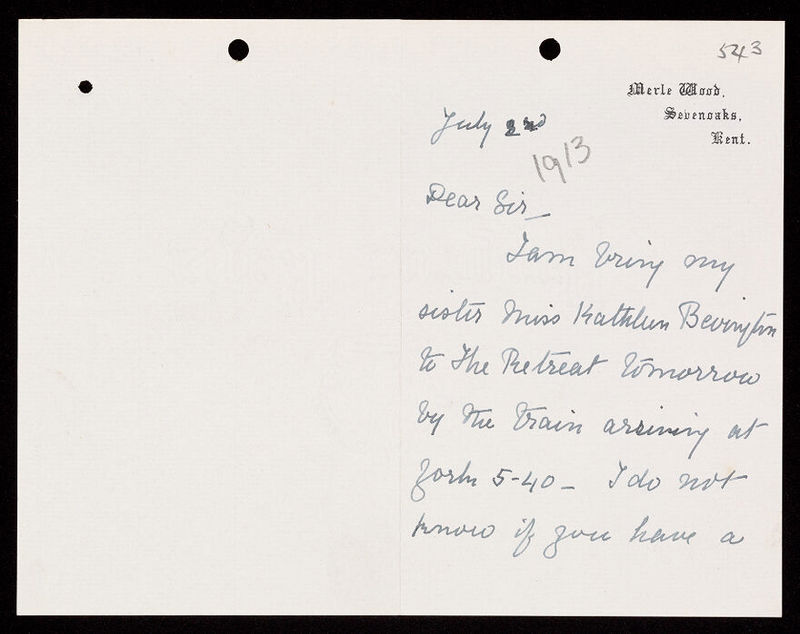 543
Merle Wood,
Sevenoaks,
Kent.
July 2nd
1913
Dear Sir_
I am bring my
sister Miss Kathleen Bevington
to The Retreat tomorrow
by the train arriving at
York 5-40_ I do not
know if you have a